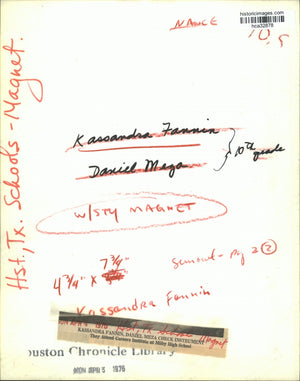 historicimages.com
hca32878
NANCE
Hst., Tx. Schools - Magnet.
Kassandra Fannin
Daniel Meza
10th grade
W/STY MAGNET
7 3/4"
4 3/4" x
Kassandra Fannin
KASSANDRA FANNIN, DANIEL MEZA CHECK INSTRUMENT
They Attend Careers Institute at Milby High School
ouston Chronicle Library
MON APR 5 1976